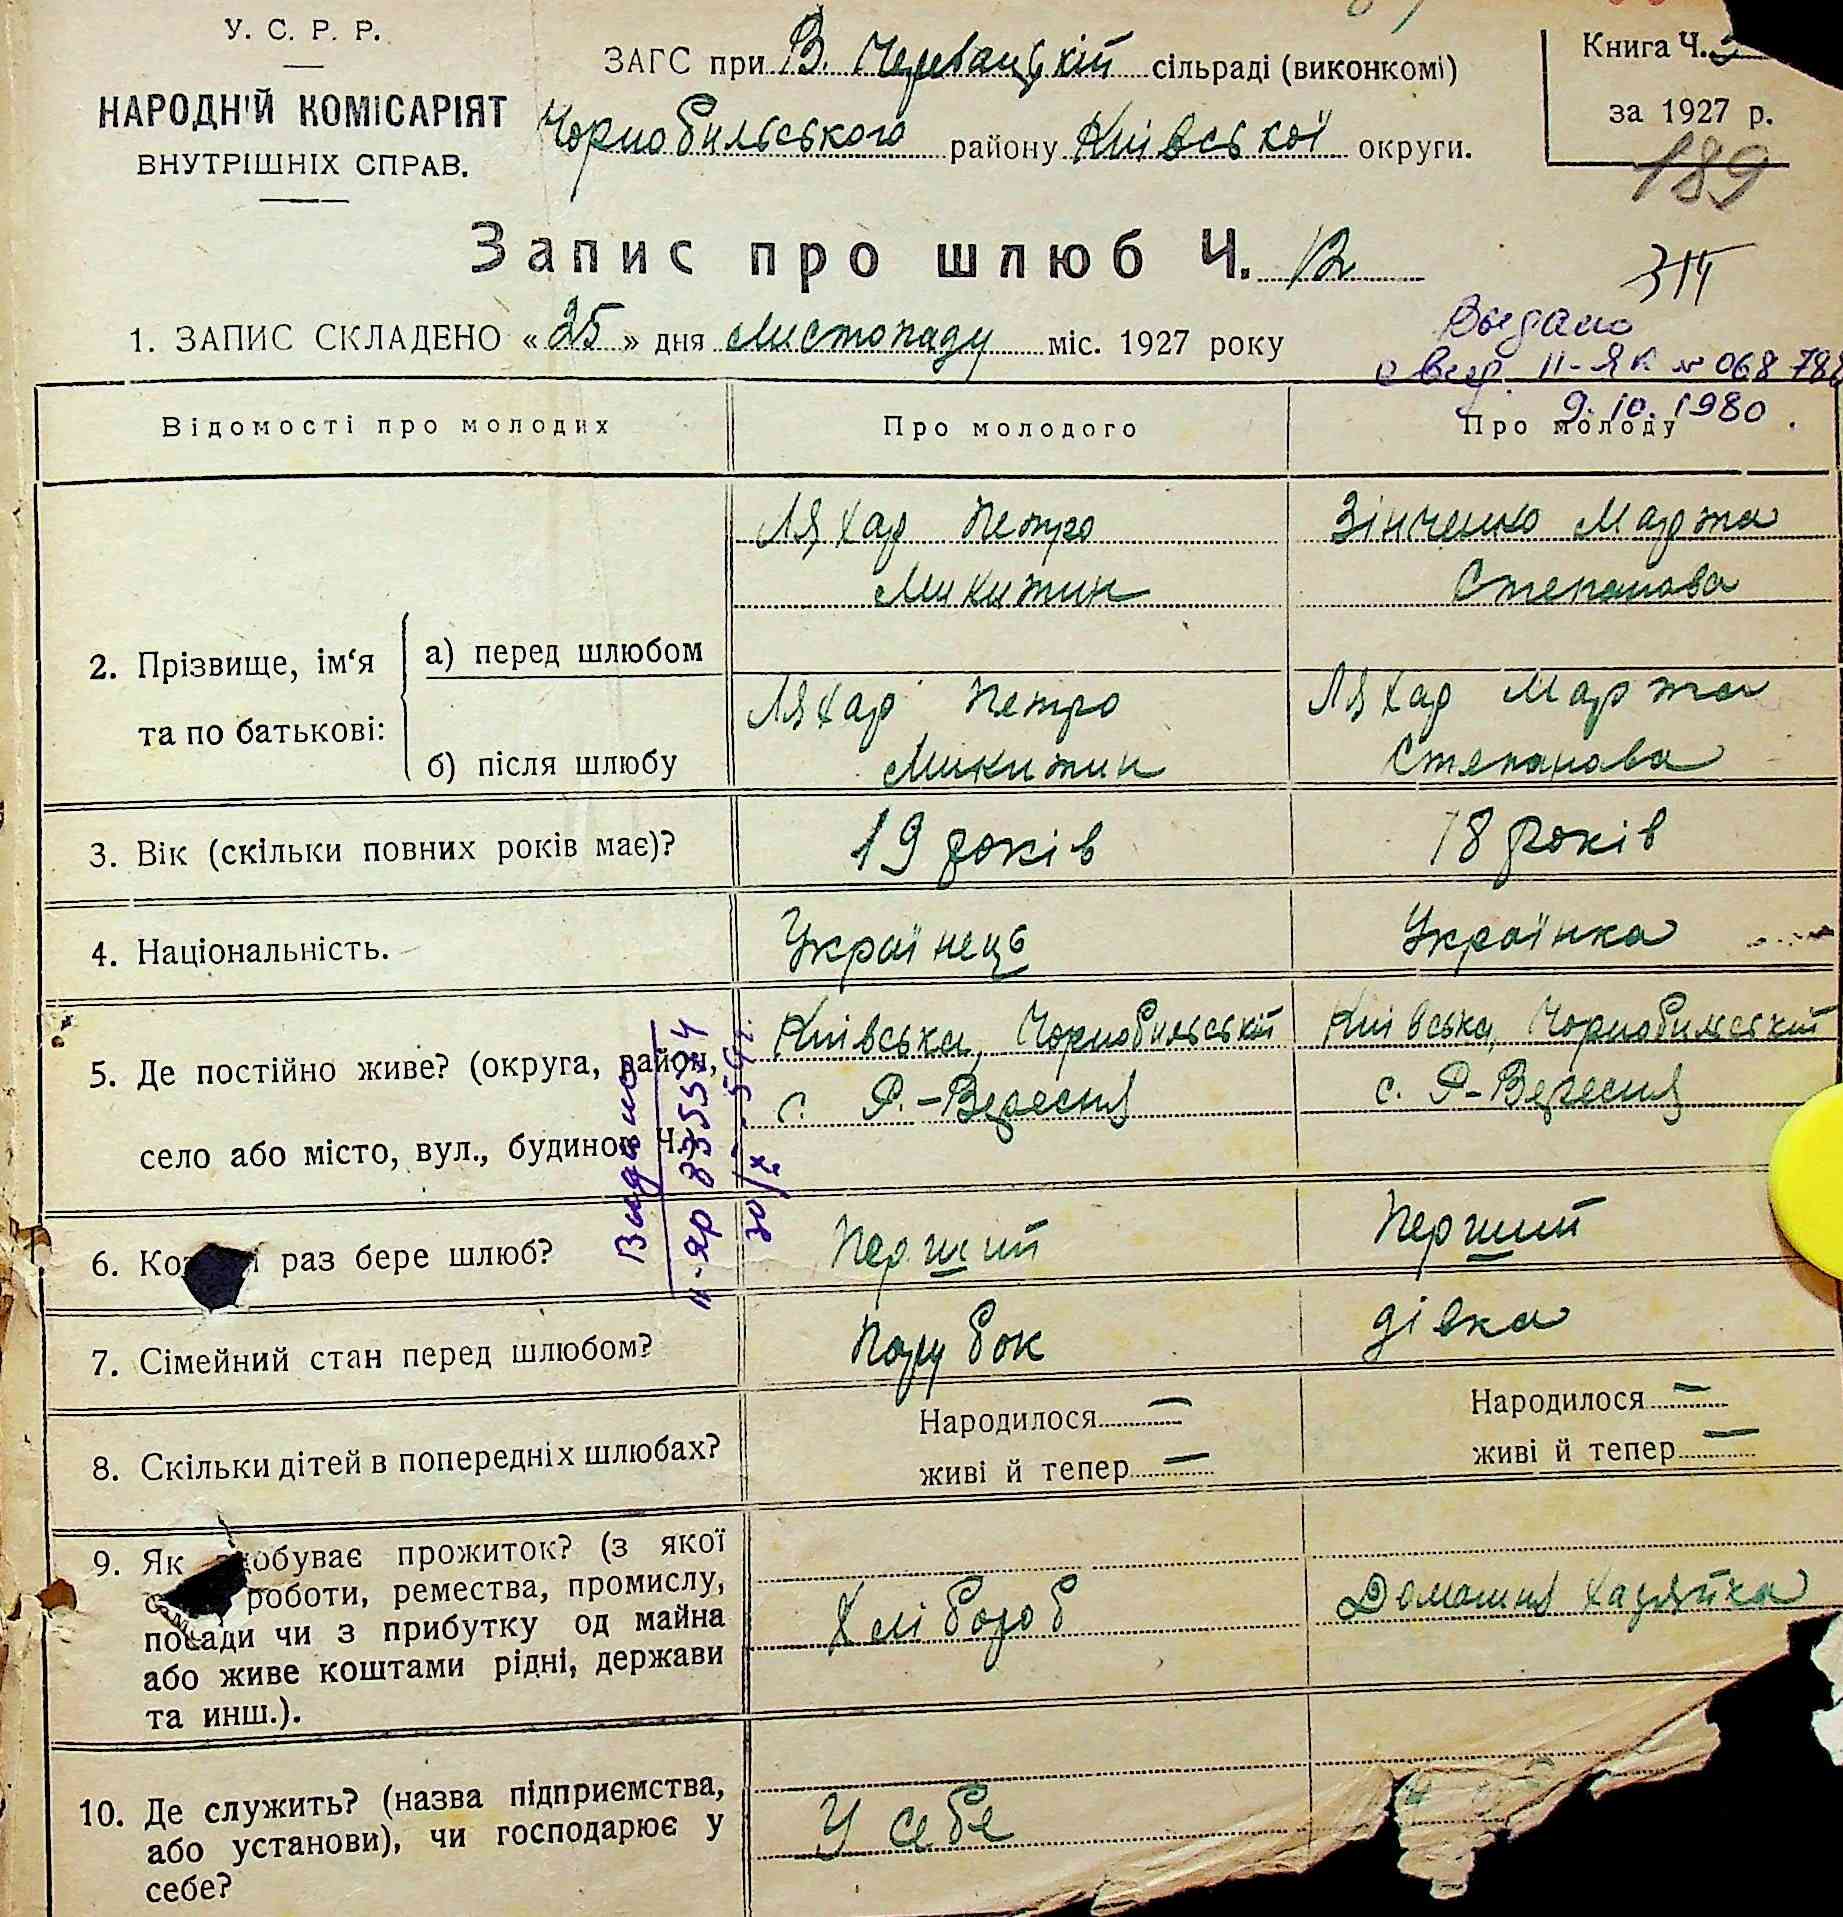 У. С. Р. Р.
НАРОДНІЙ КОМІСАРІЯТ
ВНУТРІШНІХ СПРАВ.
ЗАГС при В. Черевацькій сільраді (виконкомі)
Чорнобильського району Київської округи.
Книга Ч.
за 1927 р.
189
Запис про шлюб Ч. 12
1. ЗАПИС СКЛАДЕНО «25» дня Листопаду міс. 1927 року
Выдано
II-ЯК № 068
9.10.1980
Відомості про молодих
Про молодого
Про молоду
2. Прізвище, ім'я та по батькові:
а) перед шлюбом
Ляхар Петро
Микитин
Зінченко Марта
Степанова
б) після шлюбу
Ляхар Петро
Микитин
Ляхар Марта
Степанова
3. Вік (скільки повних років має)?
19 років
18 років
4. Національність.
Українець
Українка
5. Де постійно живе? (округа, район,
село або місто, вул., будинок Ч.)
Київська, Чорнобильській
с. Р.-Вересня
Київська, Чорнобильській
с. Р-Вересня
Видано
6. раз бере шлюб?
Перший
Перший
7. Сімейний стан перед шлюбом?
Парубок
дівка
8. Скільки дітей в попередніх шлюбах?
Народилося —
живі й тепер —
Народилося —
живі й тепер —
9. Як здобуває прожиток? (з якої
роботи, ремества, промислу,
посади чи з прибутку од майна
або живе коштами рідні, держави
та инш.).
Хлібороб
Домашня хазяйка
10. Де служить? (назва підприємства,
або установи), чи господарює у
себе?
У себе